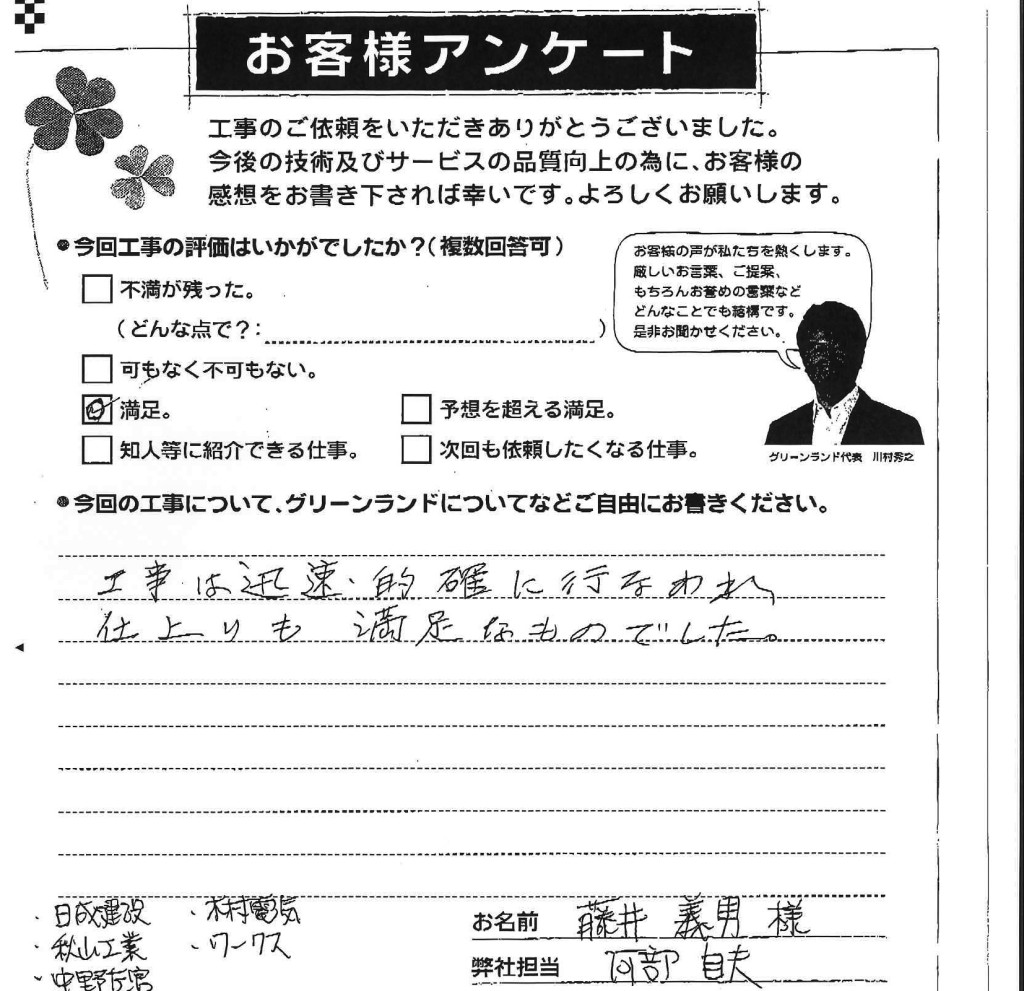 お客様アンケート
工事のご依頼をいただきありがとうございました。
今後の技術及びサービスの品質向上の為に、お客様の
感想をお書き下されば幸いです。よろしくお願いします。
今回工事の評価はいかがでしたか？（複数回答可）
不満が残った。
（どんな点で？： ）
可もなく不可もない。
満足。
予想を超える満足。
知人等に紹介できる仕事。
次回も依頼したくなる仕事。
お客様の声が私たちを熱くします。
厳しいお言葉、ご提案、
もちろんお誉めの言葉など
どんなことでも結構です。
是非お聞かせください。
グリーンランド代表 川村秀之
今回の工事について、グリーンランドについてなどご自由にお書きください。
工事は迅速・的確に行なわれ、
仕上りも 満足なものでした。
・日成建設
・木村電気
・秋山工業
・ワークス
・中野左官
お名前 藤井 義男 様
弊社担当 阿部